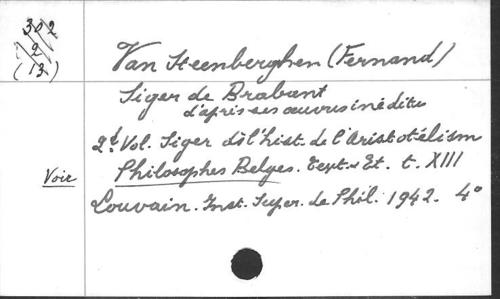 302
2
(13)
Van Steenberghen (Fernand)
Siger de Brabant
d'après ses œuvres inédites
2d. Vol. Siger ds l'hist. de l'Aristotélism
Voir
Philosophes Belges. Text. et Et. t. XIII
Louvain. Inst. Super. de Phil. 1942. 4°